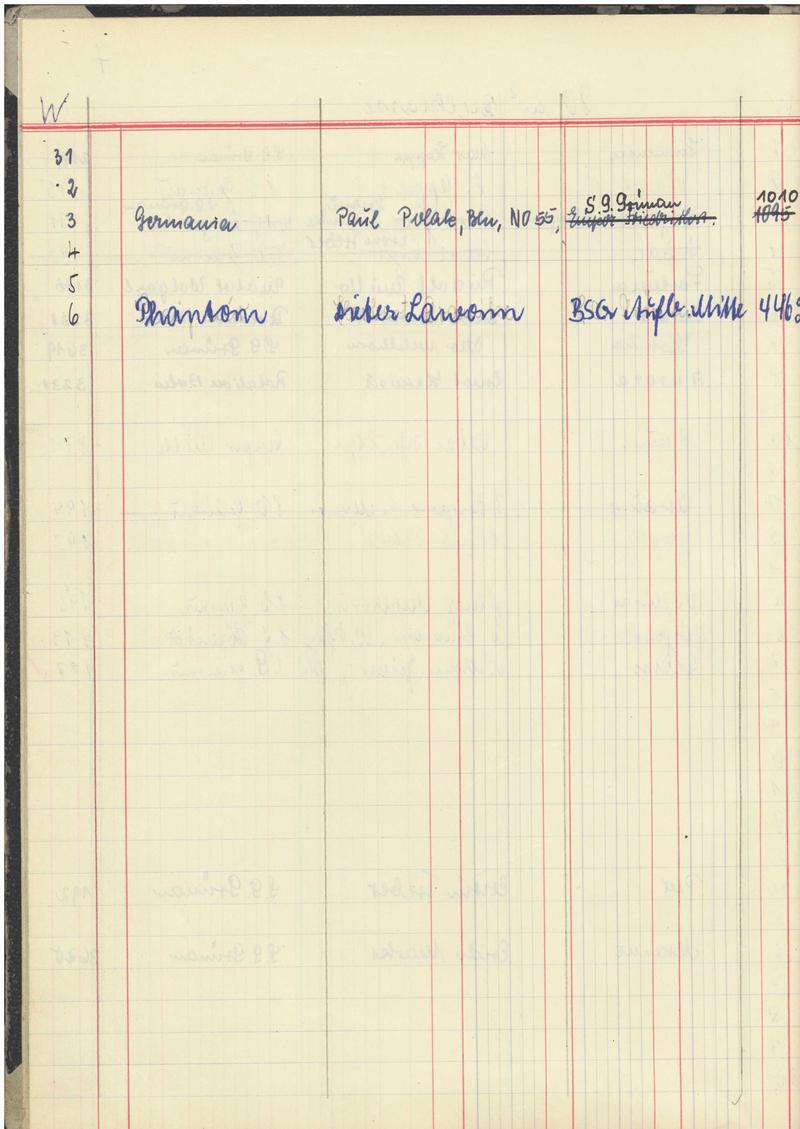 W
31
2
S.G. Grünau 1010
3 Germania Paul Polatz, Bln, NO 55, 1095
4
5
6 Phantom Dieter Lawonn BSG Aufb. Mitte 446